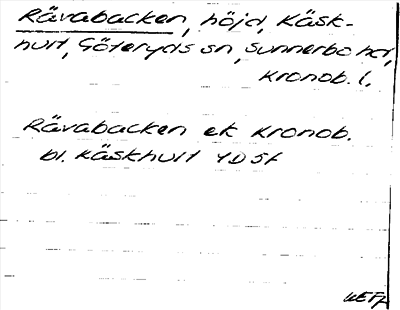 Rävabacken, höjd, Käsk-
hult, Göteryds sn, Sunnerbo hd,
Kronob. l.
Rävabacken ek Kronob.
bl. Käskhult 4D5f